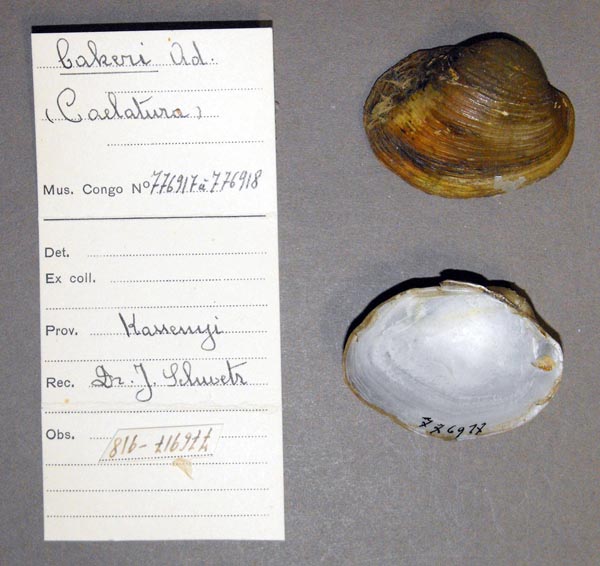 bakeri Ad.
(Caelatura)
Mus. Congo Nº 776917 à 776918
Det.
Ex coll.
Prov. Kassenyi
Rec. Dr. J. Schwetz
Obs.
776917-918
776917